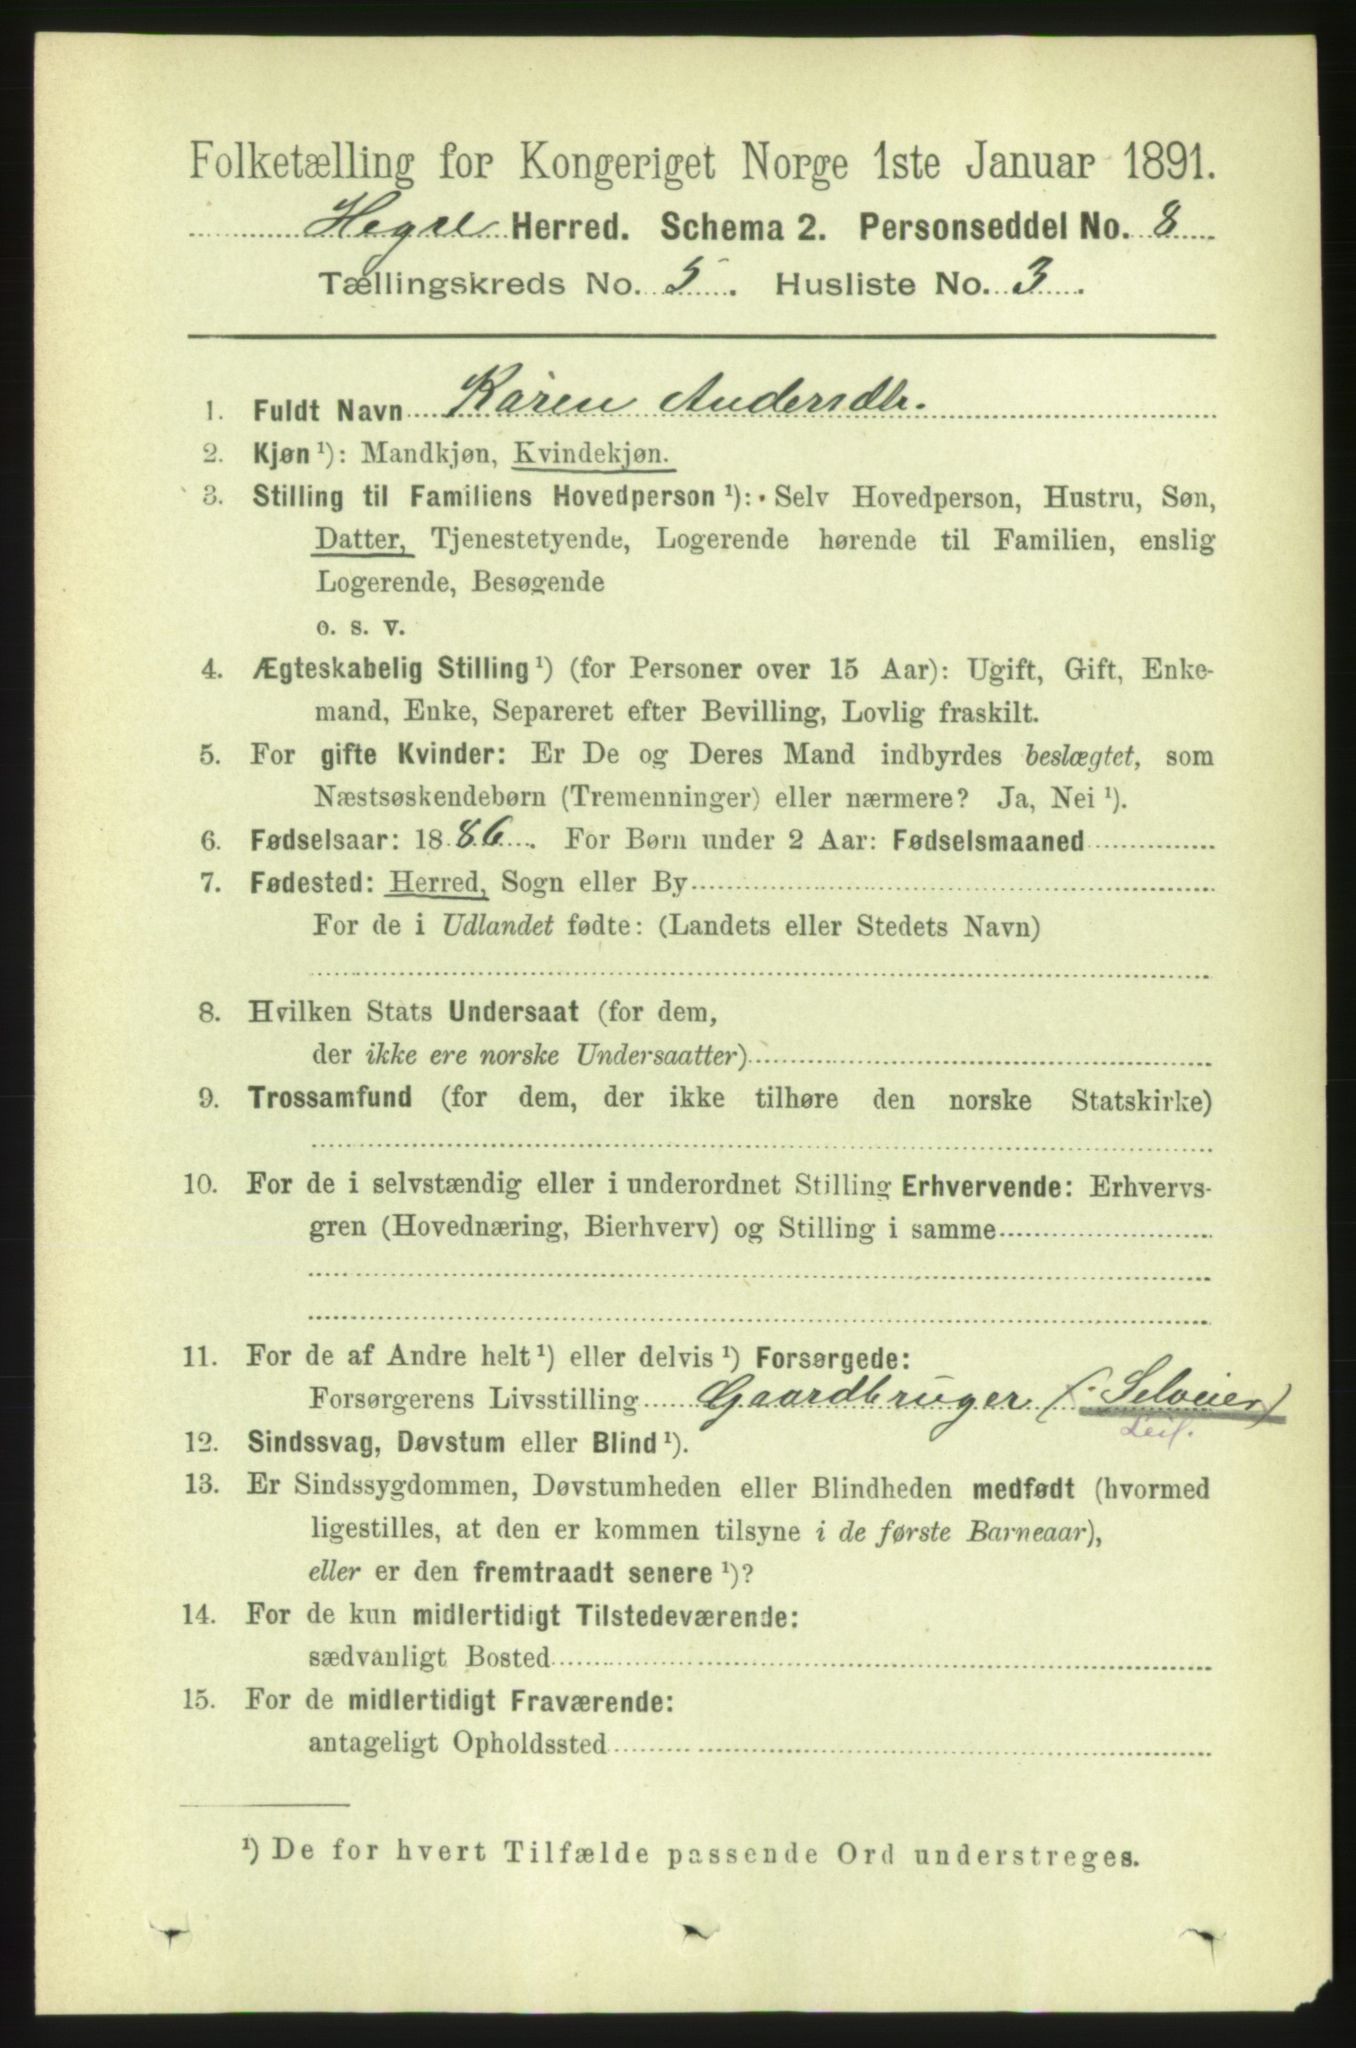 Folketælling for Kongeriget Norge 1ste Januar 1891.
Hegre Herred. Schema 2. Personseddel No. 8
Tællingskreds No. 5. Husliste No. 3.
1. Fuldt Navn Karen Andersdtr.
2. Kjøn ¹): Mandkjøn, Kvindekjøn.
3. Stilling til Familiens Hovedperson ¹): Selv Hovedperson, Hustru, Søn,
Datter, Tjenestetyende, Logerende hørende til Familien, enslig
Logerende, Besøgende
o. s. v.
4. Ægteskabelig Stilling ¹) (for Personer over 15 Aar): Ugift, Gift, Enke-
mand, Enke, Separeret efter Bevilling, Lovlig fraskilt.
5. For gifte Kvinder: Er De og Deres Mand indbyrdes beslægtet, som
Næstsøskendebørn (Tremenninger) eller nærmere? Ja, Nei ¹).
6. Fødselsaar: 1886. For Børn under 2 Aar: Fødselsmaaned
7. Fødested: Herred, Sogn eller By
For de i Udlandet fødte: (Landets eller Stedets Navn)
8. Hvilken Stats Undersaat (for dem,
der ikke ere norske Undersaatter)
9. Trossamfund (for dem, der ikke tilhøre den norske Statskirke)
10. For de i selvstændig eller i underordnet Stilling Erhvervende: Erhvervs-
gren (Hovednæring, Bierhverv) og Stilling i samme
11. For de af Andre helt ¹) eller delvis ¹) Forsørgede:
Forsørgerens Livsstilling Gaardbruger (: Selveier)
Leil.
12. Sindssvag, Døvstum eller Blind ¹).
13. Er Sindssygdommen, Døvstumheden eller Blindheden medfødt (hvormed
ligestilles, at den er kommen tilsyne i de første Barneaar),
eller er den fremtraadt senere ¹)?
14. For de kun midlertidigt Tilstedeværende:
sædvanligt Bosted
15. For de midlertidigt Fraværende:
antageligt Opholdssted
¹) De for hvert Tilfælde passende Ord understreges.